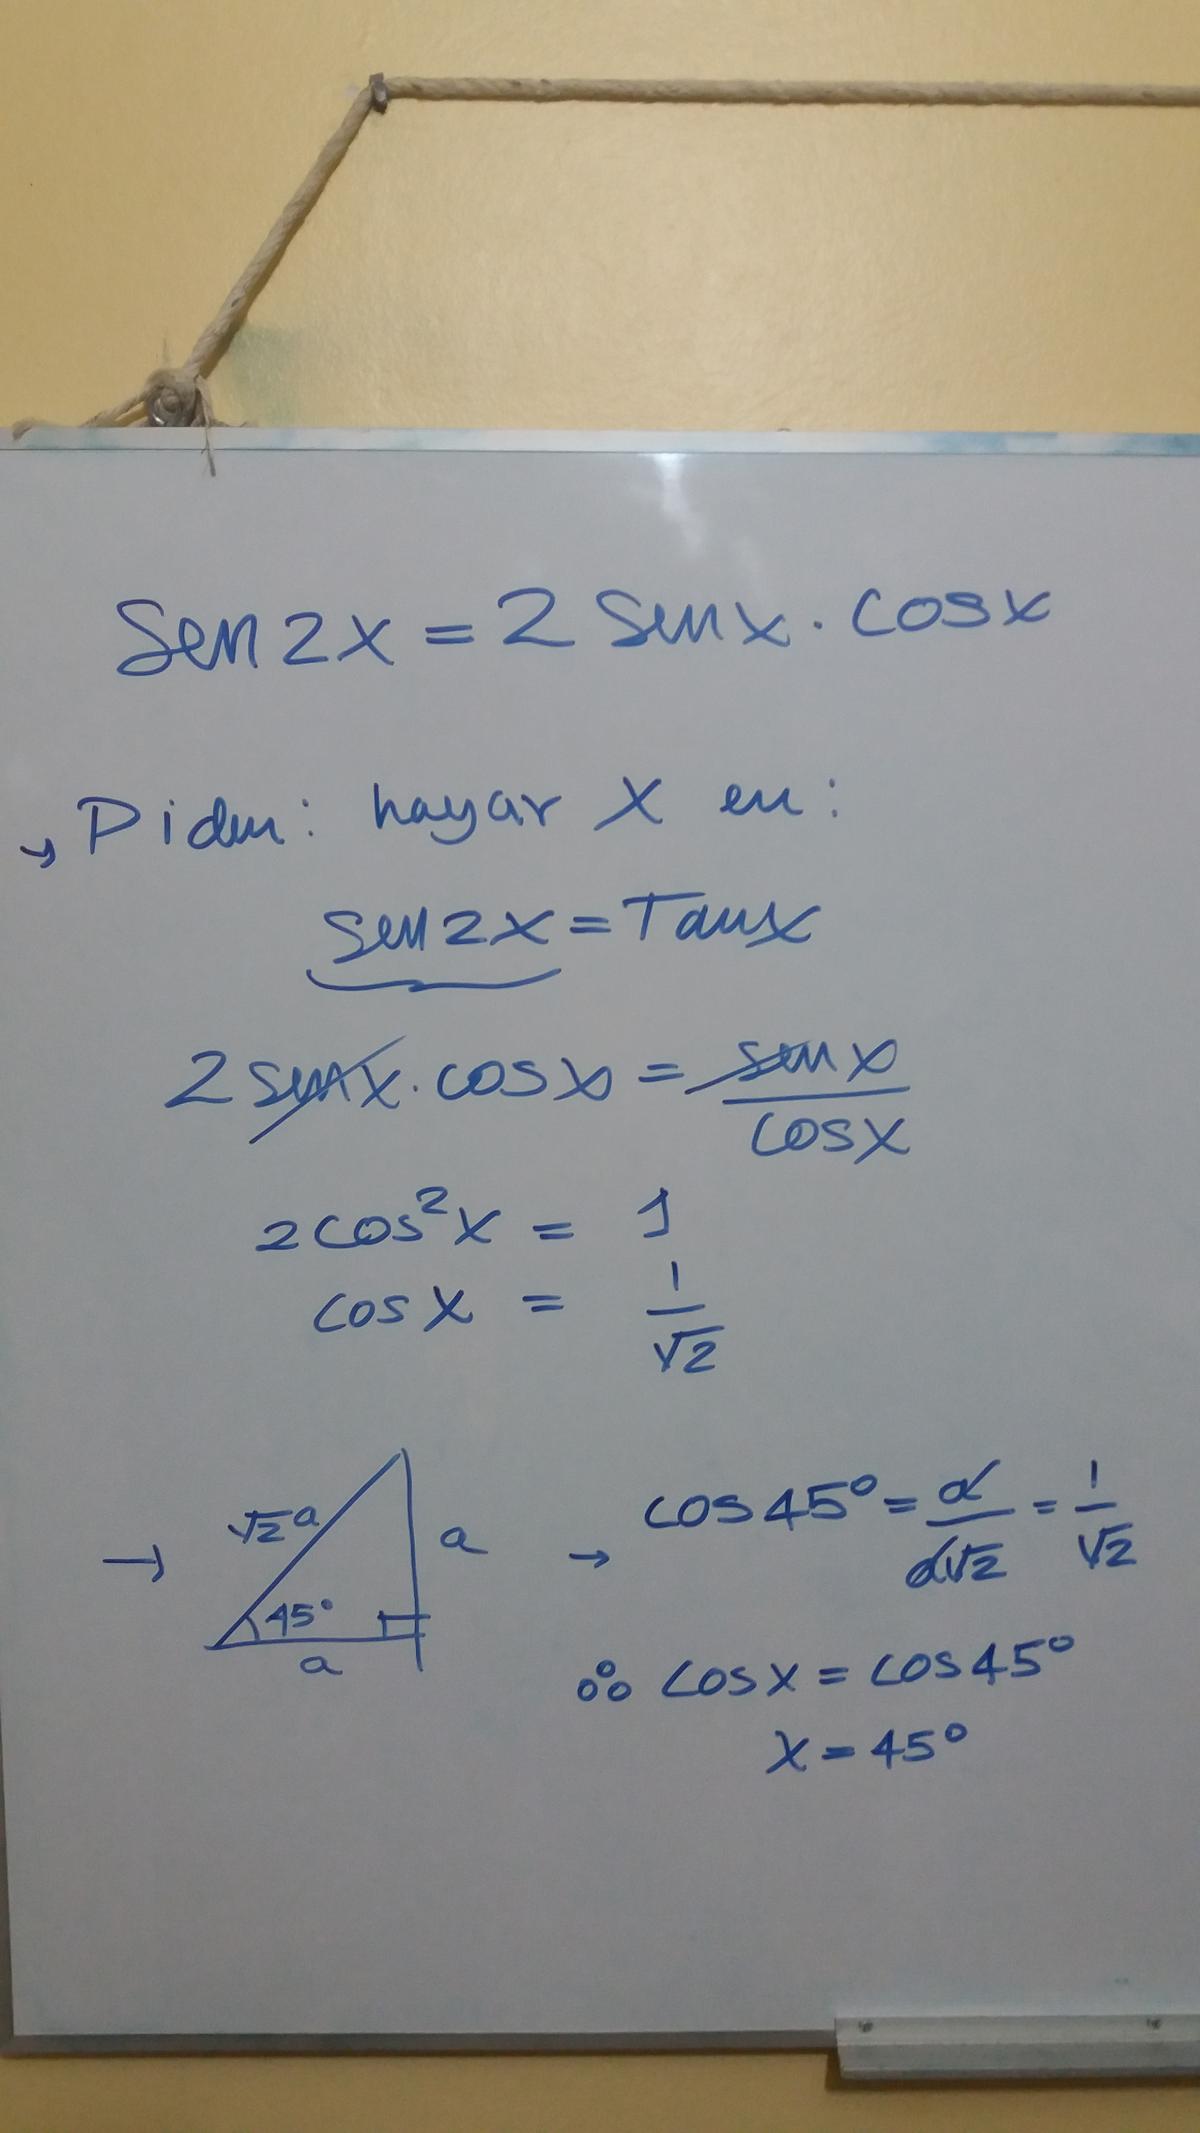 Sen 2x = 2 Senx . cosx
→ Piden: hayar X en:
Sen 2x = Tanx
2 senx . cosx = senx / cosx
2cos²x = 1
cosx = 1/√2
→ √2a a 45° a
→ cos45° = a/a√2 = 1/√2
∴ cosx = cos45°
x = 45°